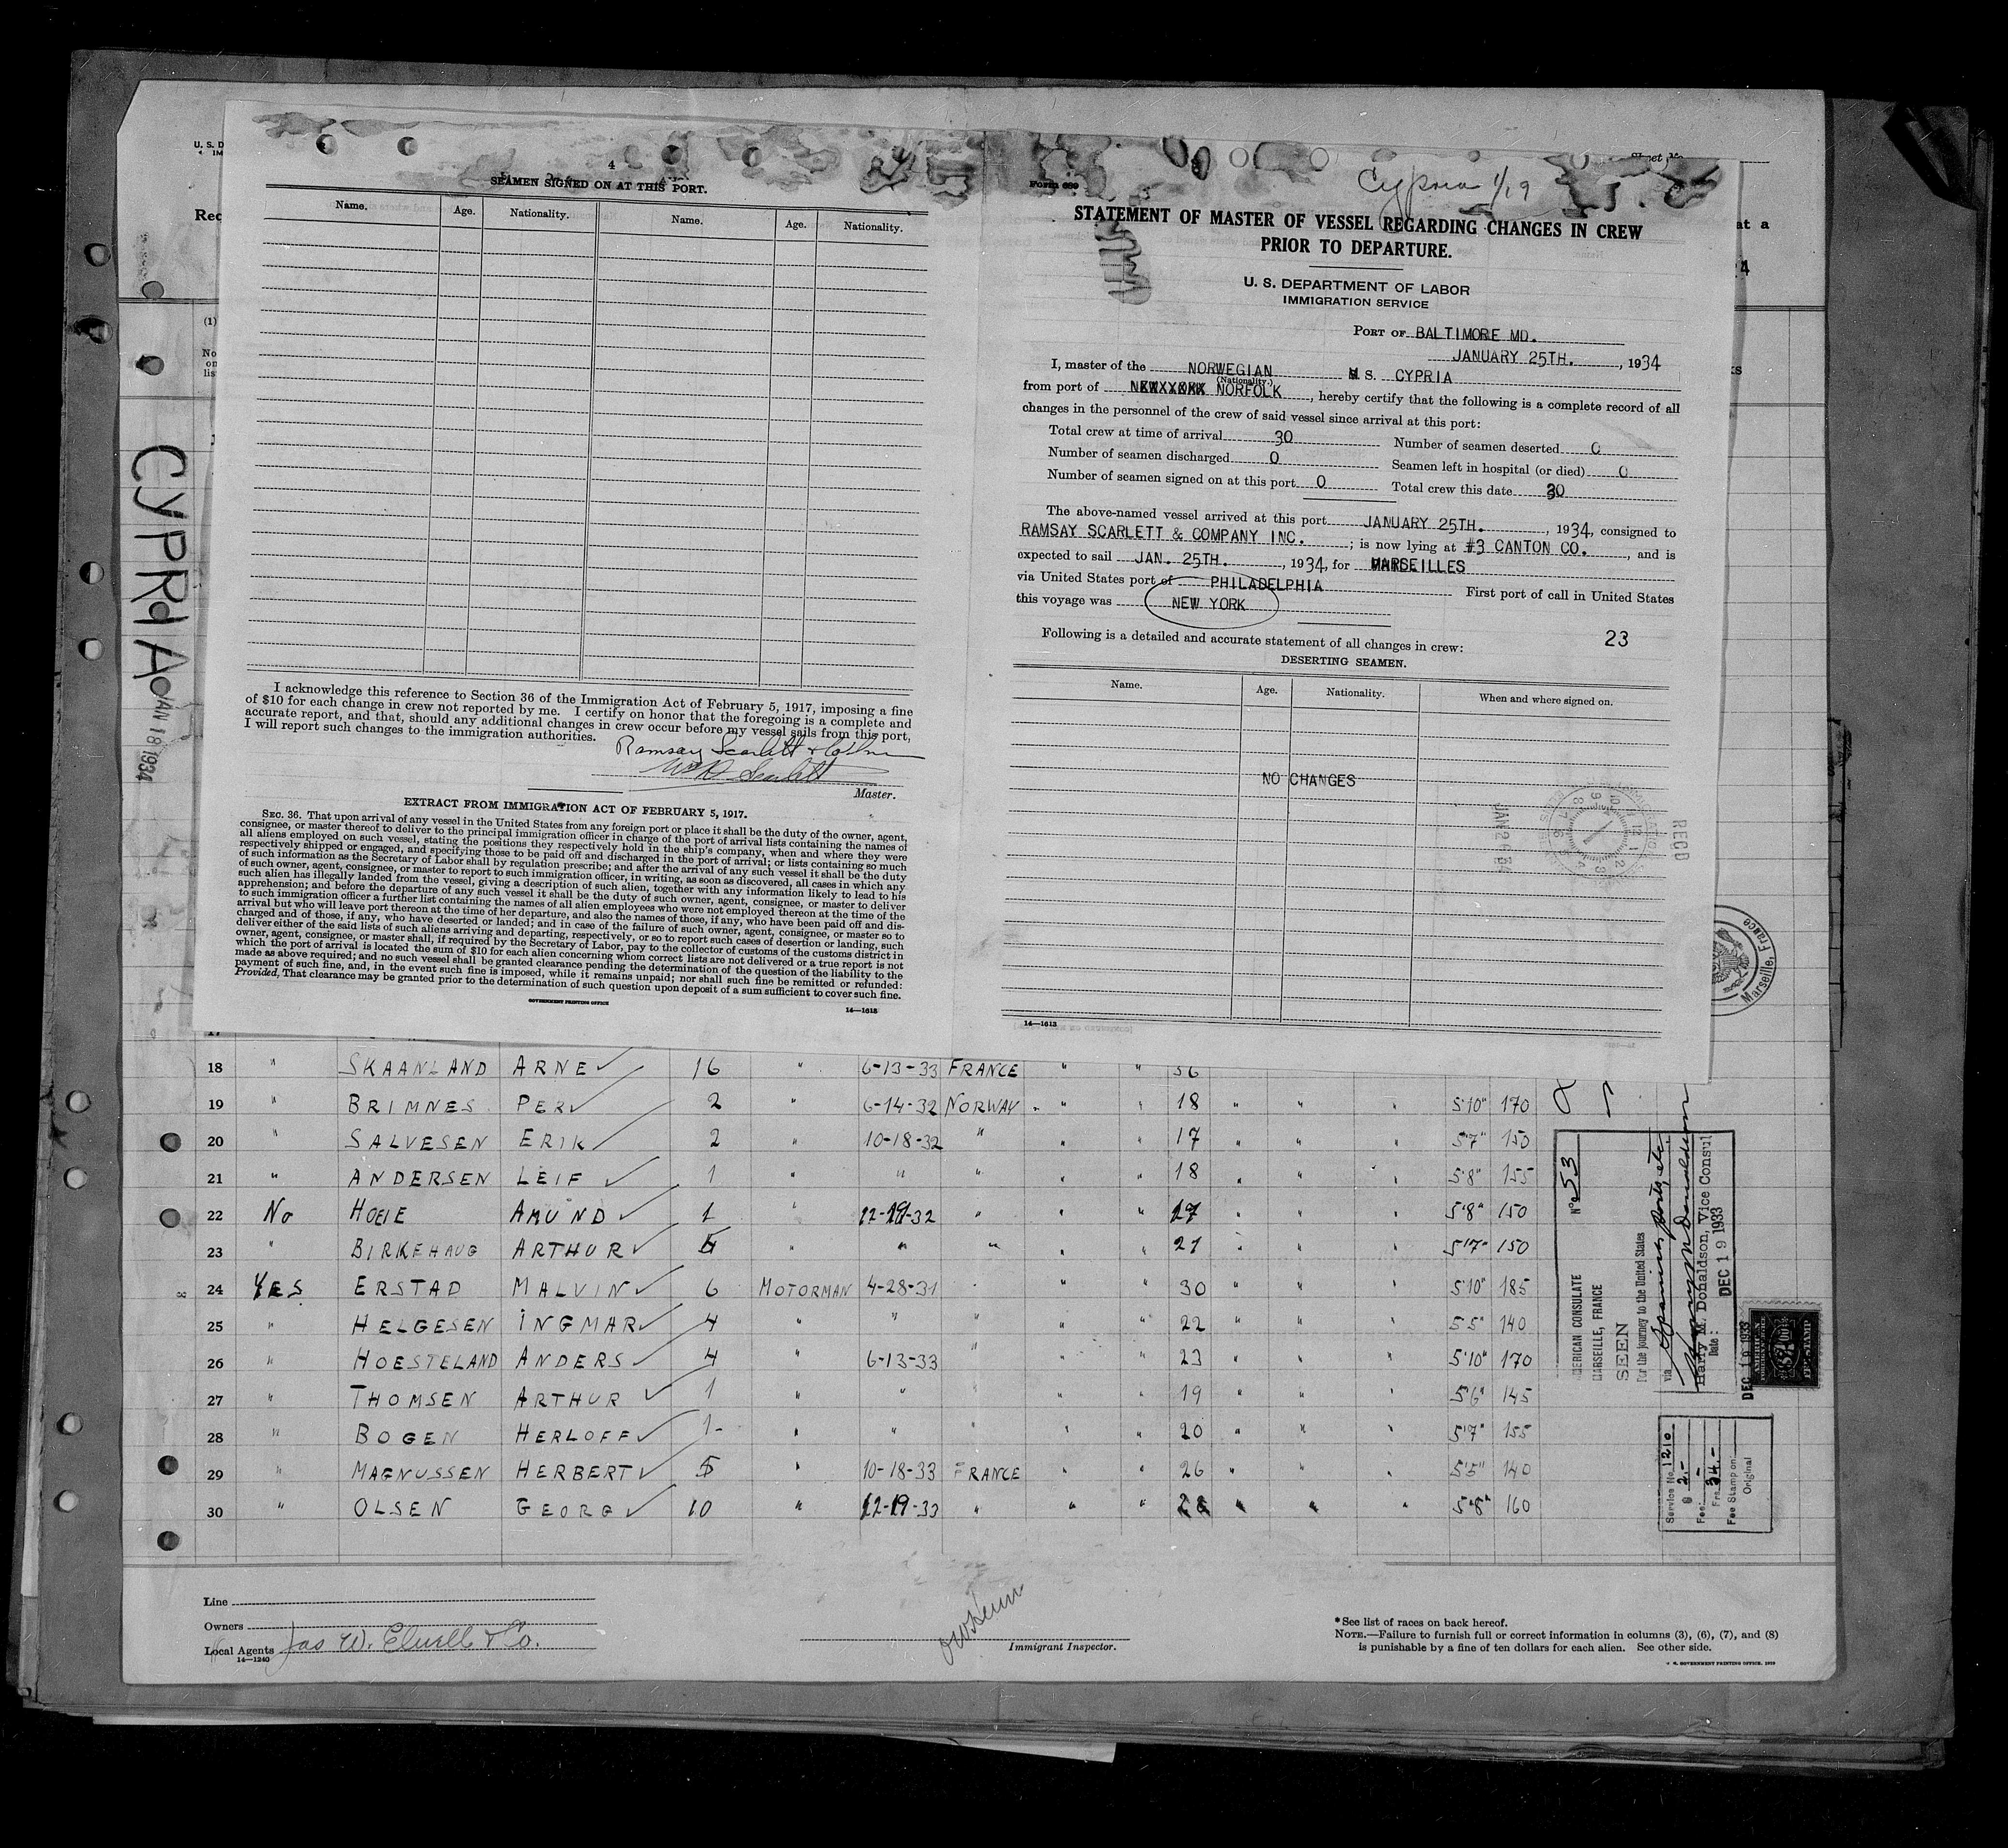 U. S. D
IM
Rec
(1)
No
on
list
CYPRIA
JAN 18 1934
4
SEAMEN SIGNED ON AT THIS PORT.
Name. Age. Nationality. Name. Age. Nationality.
I acknowledge this reference to Section 36 of the Immigration Act of February 5, 1917, imposing a fine
of $10 for each change in crew not reported by me. I certify on honor that the foregoing is a complete and
accurate report, and that, should any additional changes in crew occur before my vessel sails from this port,
I will report such changes to the immigration authorities.
Ramsay Scarlett & Co Inc
Wm D Scarlett
Master.
EXTRACT FROM IMMIGRATION ACT OF FEBRUARY 5, 1917.
SEC. 36. That upon arrival of any vessel in the United States from any foreign port or place it shall be the duty of the owner, agent,
consignee, or master thereof to deliver to the principal immigration officer in charge of the port of arrival lists containing the names of
all aliens employed on such vessel, stating the positions they respectively hold in the ship's company, when and where they were
respectively shipped or engaged, and specifying those to be paid off and discharged in the port of arrival; or lists containing so much
of such information as the Secretary of Labor shall by regulation prescribe; and after the arrival of any such vessel it shall be the duty
of such owner, agent, consignee, or master to report to such immigration officer, in writing, as soon as discovered, all cases in which any
such alien has illegally landed from the vessel, giving a description of such alien, together with any information likely to lead to his
apprehension; and before the departure of any such vessel it shall be the duty of such owner, agent, consignee, or master to deliver
to such immigration officer a further list containing the names of all alien employees who were not employed thereon at the time of the
arrival but who will leave port thereon at the time of her departure, and also the names of those, if any, who have been paid off and dis-
charged and of those, if any, who have deserted or landed; and in case of the failure of such owner, agent, consignee, or master so to
deliver either of the said lists of such aliens arriving and departing, respectively, or so to report such cases of desertion or landing, such
owner, agent, consignee, or master shall, if required by the Secretary of Labor, pay to the collector of customs of the customs district in
which the port of arrival is located the sum of $10 for each alien concerning whom correct lists are not delivered or a true report is not
made as above required; and no such vessel shall be granted clearance pending the determination of the question of the liability to the
payment of such fine, and, in the event such fine is imposed, while it remains unpaid; nor shall such fine be remitted or refunded:
Provided, That clearance may be granted prior to the determination of such question upon deposit of a sum sufficient to cover such fine.
GOVERNMENT PRINTING OFFICE
14—1613
Form 689
Cypria 1/19
STATEMENT OF MASTER OF VESSEL REGARDING CHANGES IN CREW
PRIOR TO DEPARTURE.
U. S. DEPARTMENT OF LABOR
IMMIGRATION SERVICE
PORT OF BALTIMORE MD.
JANUARY 25TH., 1934
I, master of the NORWEGIAN M S. CYPRIA
(Nationality.)
from port of NORFOLK, hereby certify that the following is a complete record of all
changes in the personnel of the crew of said vessel since arrival at this port:
Total crew at time of arrival 30 Number of seamen deserted 0
Number of seamen discharged 0 Seamen left in hospital (or died) 0
Number of seamen signed on at this port 0 Total crew this date 30
The above-named vessel arrived at this port JANUARY 25TH., 1934, consigned to
RAMSAY SCARLETT & COMPANY INC. ; is now lying at #3 CANTON CO., and is
expected to sail JAN. 25TH., 1934, for MARSEILLES
via United States port of PHILADELPHIA First port of call in United States
this voyage was NEW YORK
Following is a detailed and accurate statement of all changes in crew: 23
DESERTING SEAMEN.
Name. Age. Nationality. When and where signed on.
NO CHANGES
RECD
JAN 26 34
14—1613
at a
4
Marseille, France
17
18 " SKAANLAND ARNE 16 " 6-13-33 FRANCE " " 36
19 " BRIMNES PER 2 " 6-14-32 NORWAY " " 18 " " " 5'10" 170
20 " SALVESEN ERIK 2 " 10-18-32 " " " 17 " " " 5'7" 150
21 " ANDERSEN LEIF 1 " " " " " 18 " " " 5'8" 155
22 No HOEIE AMUND 1 " 12-19-32 " " " 17 " " " 5'8" 150
23 " BIRKEHAUG ARTHUR 5 " " " " " 21 " " " 5'7" 150
24 YES ERSTAD MALVIN 6 MOTORMAN 4-28-31 " " " 30 " " " 5'10" 185
25 " HELGESEN INGMAR 4 " " " " " 22 " " " 5'5" 140
26 " HOESTELAND ANDERS 4 " 6-13-33 " " " 23 " " " 5'10" 170
27 " THOMSEN ARTHUR 1 " " " " " 19 " " " 5'6" 145
28 " BOGEN HERLOFF 1- " " " " " 20 " " " 5'7" 155
29 " MAGNUSSEN HERBERT 5 " 10-18-33 FRANCE " " 26 " " " 5'5" 140
30 " OLSEN GEORG 10 " 12-19-33 " " " 26 " " " 5'8" 160
No 53
AMERICAN CONSULATE
MARSEILLE, FRANCE
SEEN
For the journey to the United States
via Spanish ports, etc.
Harry M. Donaldson
Harry M. Donaldson, Vice Consul
Date: DEC 19 1933
DEC 19 1933
Service No. 1210
Fee: $ 2.-
Frs. 34.-
Fee Stamp on
Original
Line
Owners
Local Agents Jas W. Elwell & Co.
14—1240
Immigrant Inspector.
*See list of races on back hereof.
NOTE.—Failure to furnish full or correct information in columns (3), (6), (7), and (8)
is punishable by a fine of ten dollars for each alien. See other side.
U. S. GOVERNMENT PRINTING OFFICE. 1929